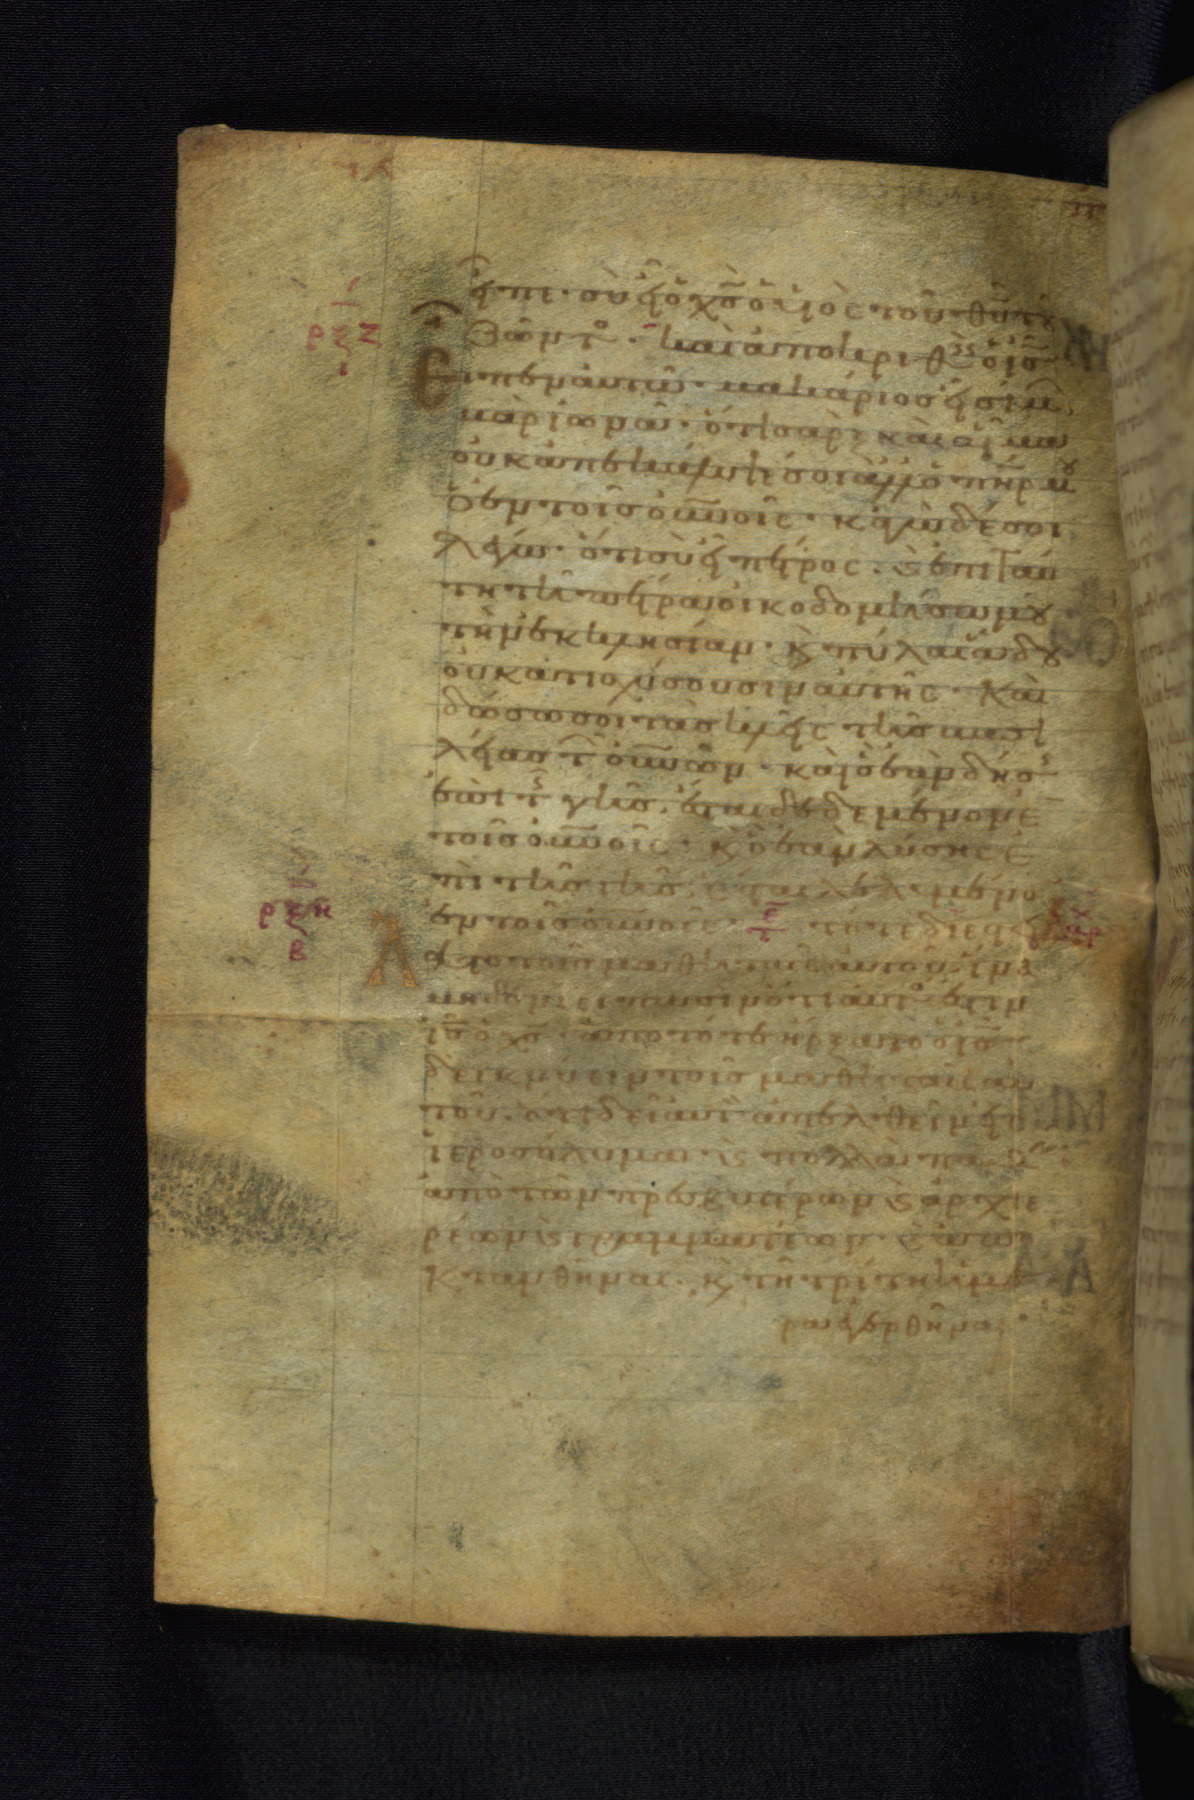 εἶπε· σὺ εἶ ὁ χς ὁ υἱὸς τοῦ θυ τοῦ
ζῶντο· καὶ ἀποκριθεὶς ὁ ις
εἶπεν αὐτῶ· μακάριος εἶ σίμων
βαρ ἰωνᾶ· ὅτι σὰρξ καὶ αἷμα
οὐκ ἀπεκάλυψέ σοι ἀλλ ὁ πηρ μου
ὁ ἐν τοῖς οὐνοῖς· κἀγὼ δέ σοι
λέγω· ὅτι σὺ εἶ πέτρος· καὶ ἐπὶ ταύ
τη τῆ πέτρα οἰκοδομήσω μου
τὴν ἐκκλησίαν· καὶ πύλαι ἅδου
οὐ κατισχύσουσιν αὐτῆς· καὶ
δώσω σοι τὰς κλεῖς τῆς βασι
λείας τῶν οὐνῶν· καὶ ὃ ἐὰν δήσης
ἐπὶ τῆς γῆς, ἔσται δεδεμένον ἐν
τοῖς οὐνοῖς· καὶ ὃ ἐὰν λύσης ἐ
πὶ τῆς γῆς, ἔσται λελυμένον
ἐν τοῖς οὐνοῖς· τότε διεστεί
λατο τοῖς μαθηταῖς αὐτοῦ· ἵνα
μηδενὶ εἴπωσιν ὅτι αὐτός ἐστιν
ις ὁ χς· ἀπὸ τότε ἤρξατο ὁ ις
δεικνύειν τοῖς μαθηταῖς αὐ
τοῦ· ὅτι δεῖ αὐτὸν ἀπελθεῖν εἰς
ἱεροσόλυμα· καὶ πολλὰ παθεῖν
ἀπὸ τῶν πρεσβυτέρων καὶ ἀρχιε
ρέων καὶ γραμματέων· καὶ ἀπο
κτανθῆναι· καὶ τῆ τρίτη ἡμέ
ρα ἐγερθῆναι·